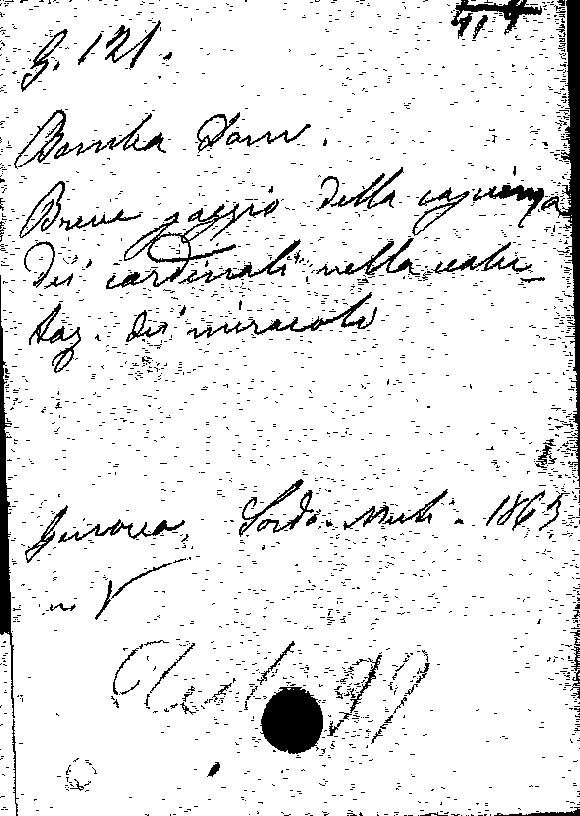 G. 121.
Bomba Dom.
Breve saggio della sapienza
dei cardinali nella valu-
taz. dei miracoli
Genova, Sordo-Muti. 1863
in
99